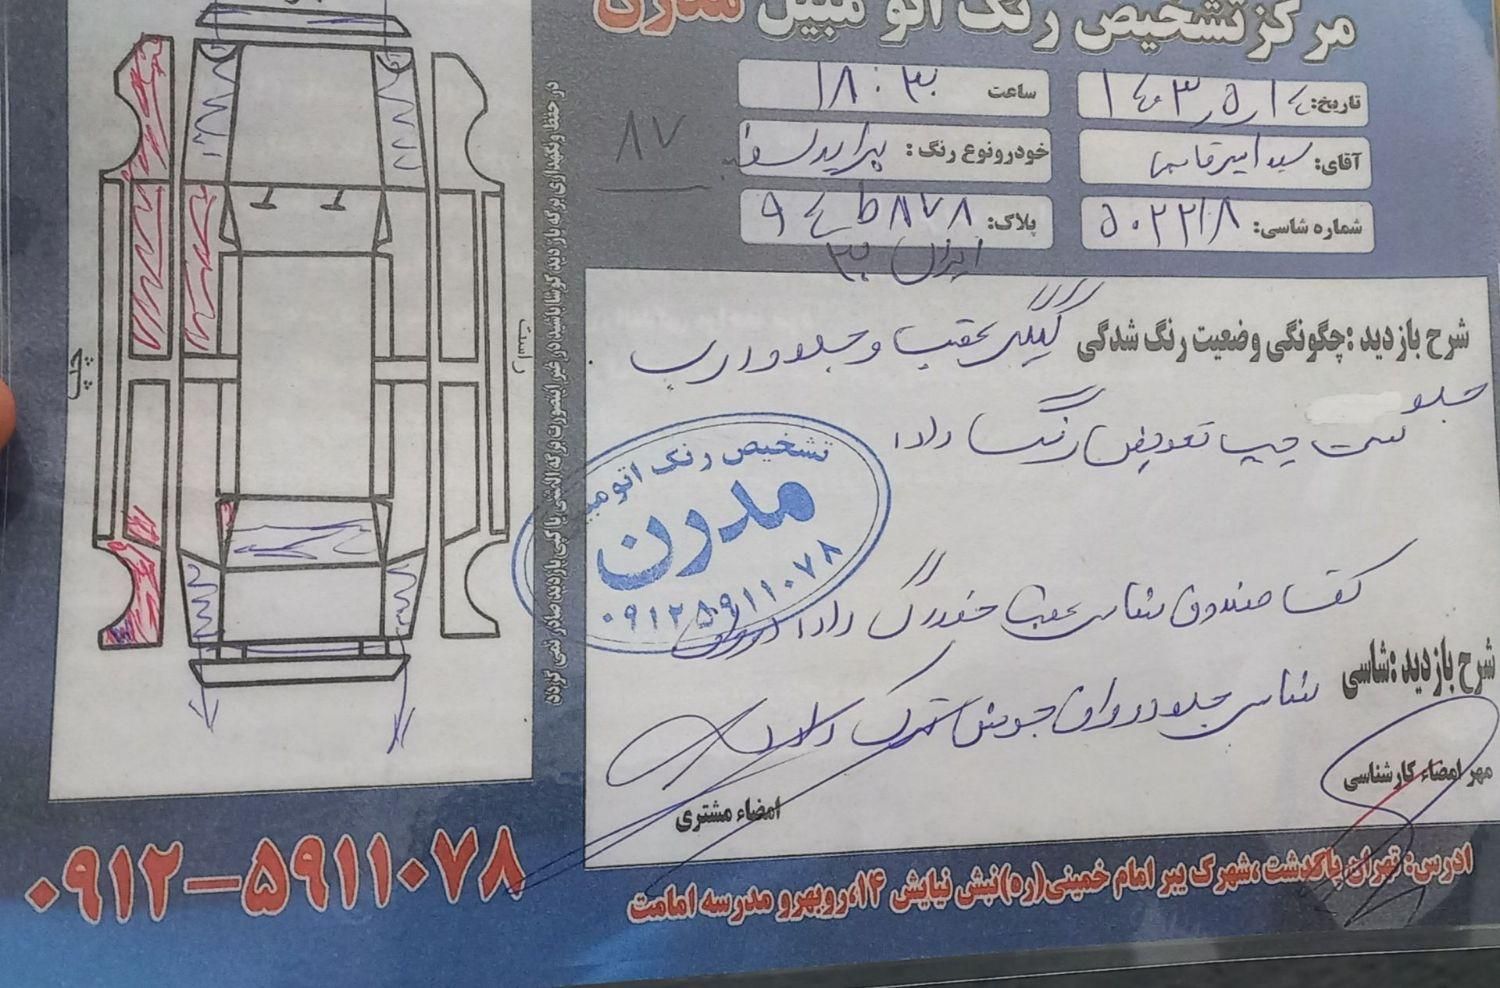 مرکز تشخیص رنگ اتو مبیل مدرن
تاریخ: ۱۴۰۳ر۵ر۱۴
ساعت ۱۸:۳۰
آقای: سید امیر قاسمی
خودرونوع رنگ: پراید سفید
۸۷
شماره شاسی: ۵۰۲۲۲۱۸
پلاک: ۹۴ ط ۸۷۸
ایران ۳۰
شرح بازدید :چگونگی وضعیت رنگ شدگی گلگیر عقب و جلو و درب
جلو
سمت چپ تعویض رنگ دارد
تشخیص رنگ اتومبیل
مدرن
۰۹۱۲۵۹۱۱۰۷۸
کف صندوق شاسی عقب خوردگی دارد
شرح بازدید :شاسی
شاسی جلو دررفتن جوش ترک دارد
مهر امضاء کارشناسی
امضاء مشتری
چپ
راست
در حفظ و نگهداری برگه بازدید کوشا باشید در غیر اینصورت برگه المثنی یا کپی بازدید صادر نمی گردد
۰۹۱۲-۵۹۱۱۰۷۸
ادرس: تهران پاکدشت ،شهرک یبر امام خمینی(ره)نبش نیایش ۱۴،روبهرو مدرسه امامت